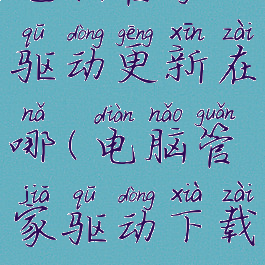 qū dòng gēng xīn zài
驱动更新在
nǎ diàn nǎo guǎn
哪(电脑管
jiā qū dòng xià zài
家驱动下载